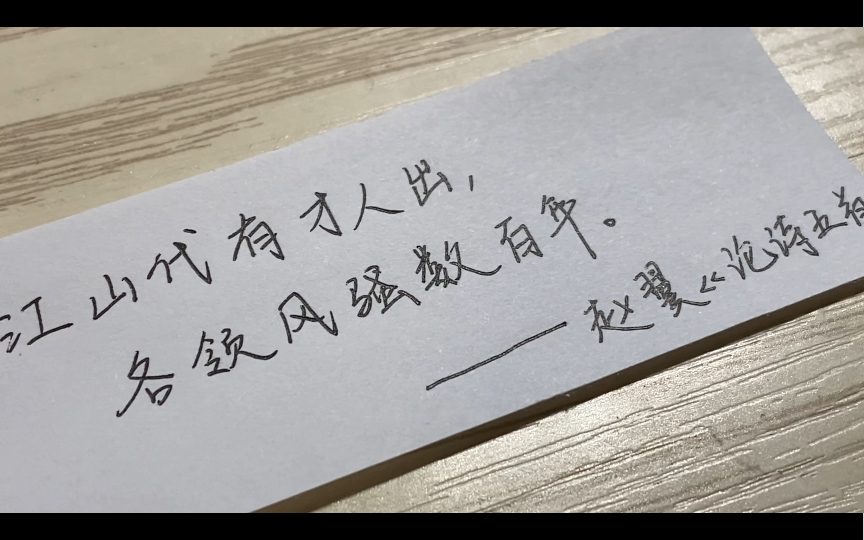 江山代有才人出,
各领风骚数百年。
——赵翼《论诗五首